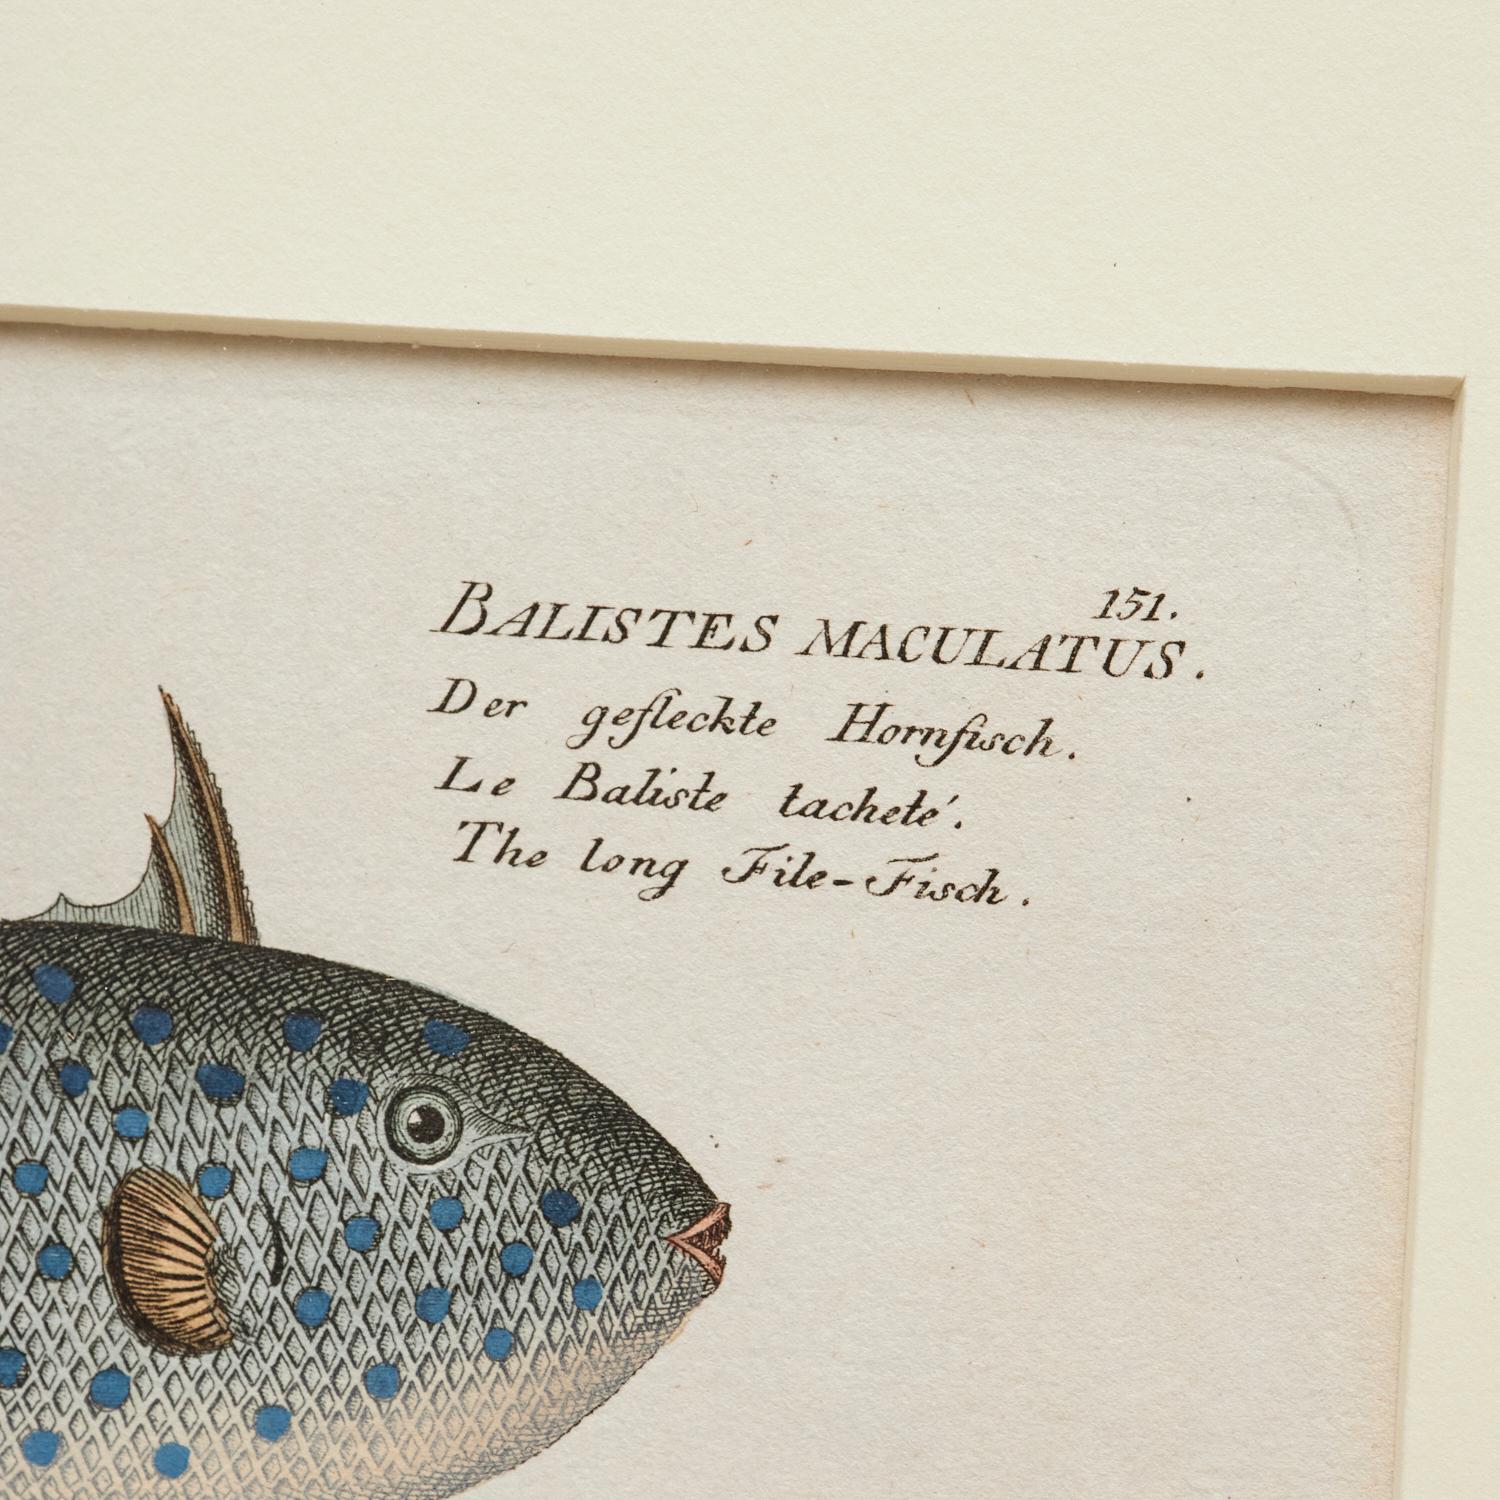 151.
BALISTES MACULATUS.
Der gefleckte Hornfisch.
Le Baliste tacheté.
The long File-Fisch.